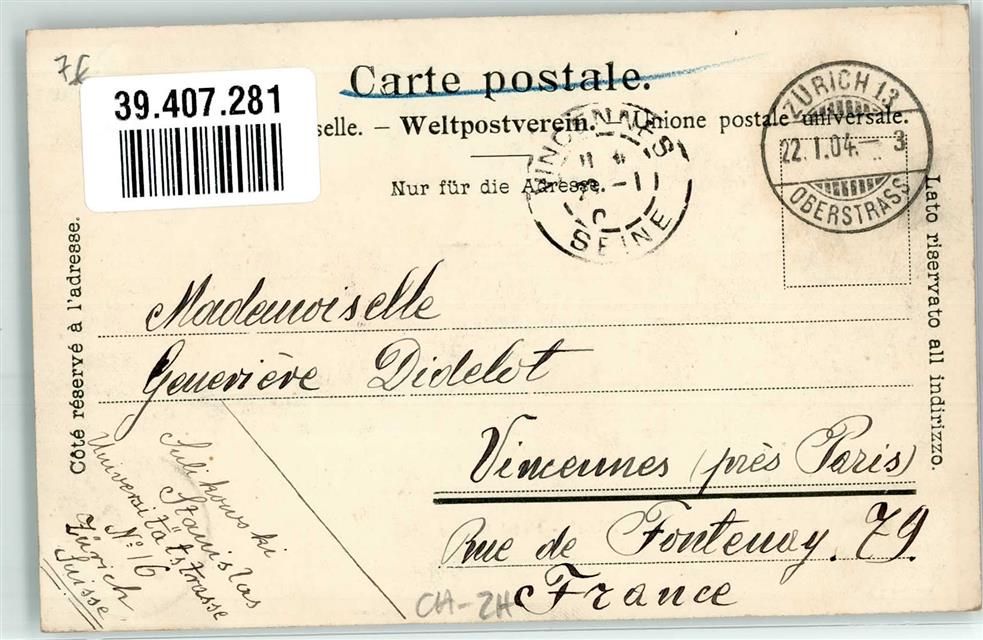 7f
Carte postale.
39.407.281
selle. – Weltpostverein. – Unione postale universale.
Nur für die Adresse.
ZÜRICH 13
22.I.04.– 3
OBERSTRASS
VINCENNES
SEINE
Côté réservé à l'adresse.
Lato riservato all indirizzo.
Mademoiselle
Geneviève Didelot
Vincennes (près Paris)
Rue de Fontenay. 79
France
Sulikowski
Stanislas
Universitätstrasse
No 16
Zürich
Suisse
CH-ZH